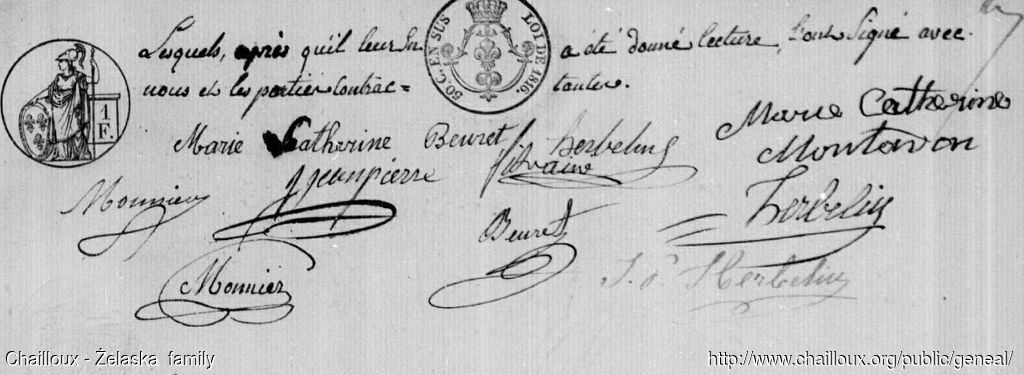 Lesquels, après qu'il leur en a été donné lecture, l'ont Signé avec
nous et les parties Contrac= tantes.
50.C. EN SUS LOI DE 1816
1 F.
Marie Catherine Beuret
Herbelin
Marie Catherine
Montavon
Monnier
J Jeanpierre
Beuret
Herbelin
Monnier
J. ph Herbelin
Chailloux - Żelaska family
http://www.chailloux.org/public/geneal/